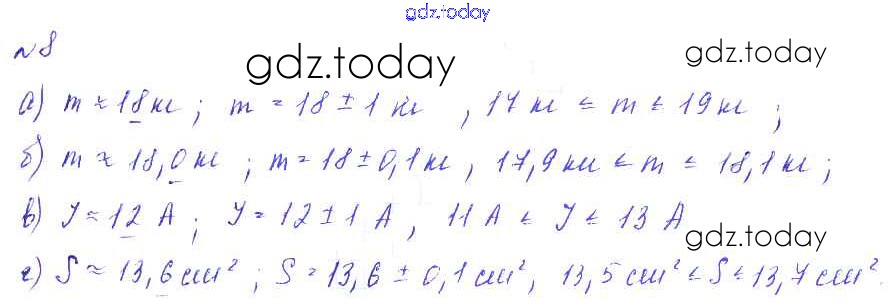 gdz.today
№8
gdz.today
gdz.today
а) m ≈ 18 кг ; m = 18 ± 1 кг , 17 кг ≤ m ≤ 19 кг ;
б) m ≈ 18,0 кг ; m = 18 ± 0,1 кг , 17,9 кг ≤ m ≤ 18,1 кг ;
в) I ≈ 12 А ; I = 12 ± 1 А , 11 А ≤ I ≤ 13 А
gdz.today
г) S ≈ 13,6 см² ; S = 13,6 ± 0,1 см² , 13,5 см² ≤ S ≤ 13,7 см²